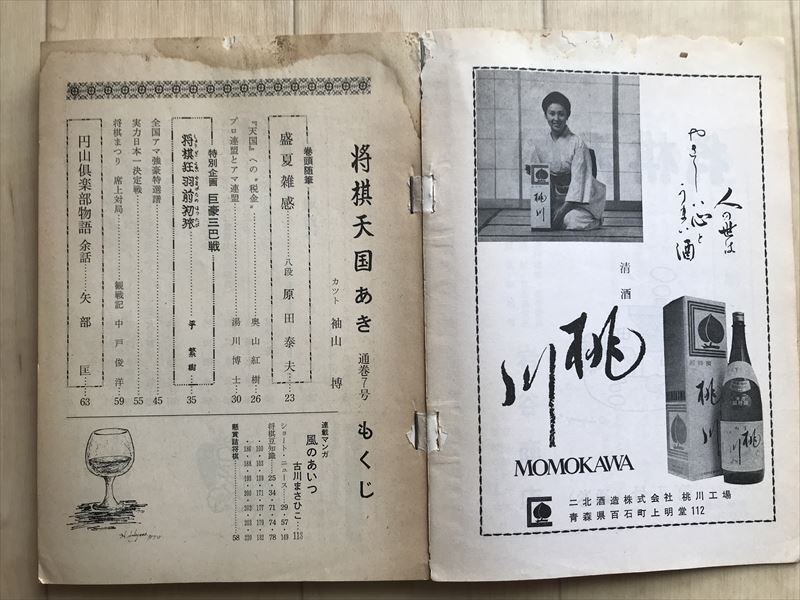 人の世は
やさしい心と
うまい酒
清酒
桃川
桃川
桃川
桃川
MOMOKAWA
二北酒造株式会社 桃川工場
青森県百石町上明堂112
将棋天国あき 通巻7号 もくじ
カット 袖山 博
巻頭随筆
盛夏雑感……八段 原田泰夫…23
『天国』への"税金"……奥山紅樹…26
プロ連盟とアマ連盟……湯川博士…30
特別企画 巨豪三巴戦
将棋狂羽前初旅……35
全国アマ強豪特選譜……45
実力日本一決定戦……55
将棋まつり 席上対局……観戦記 中戸俊洋…59
円山倶楽部物語 余話……矢部 匡…63
連載マンガ
風のあいつ
古川まさひこ…113
ショート・ニュース……29・57・149
将棋豆知識……25・34・71・74・78
懸賞詰将棋……58